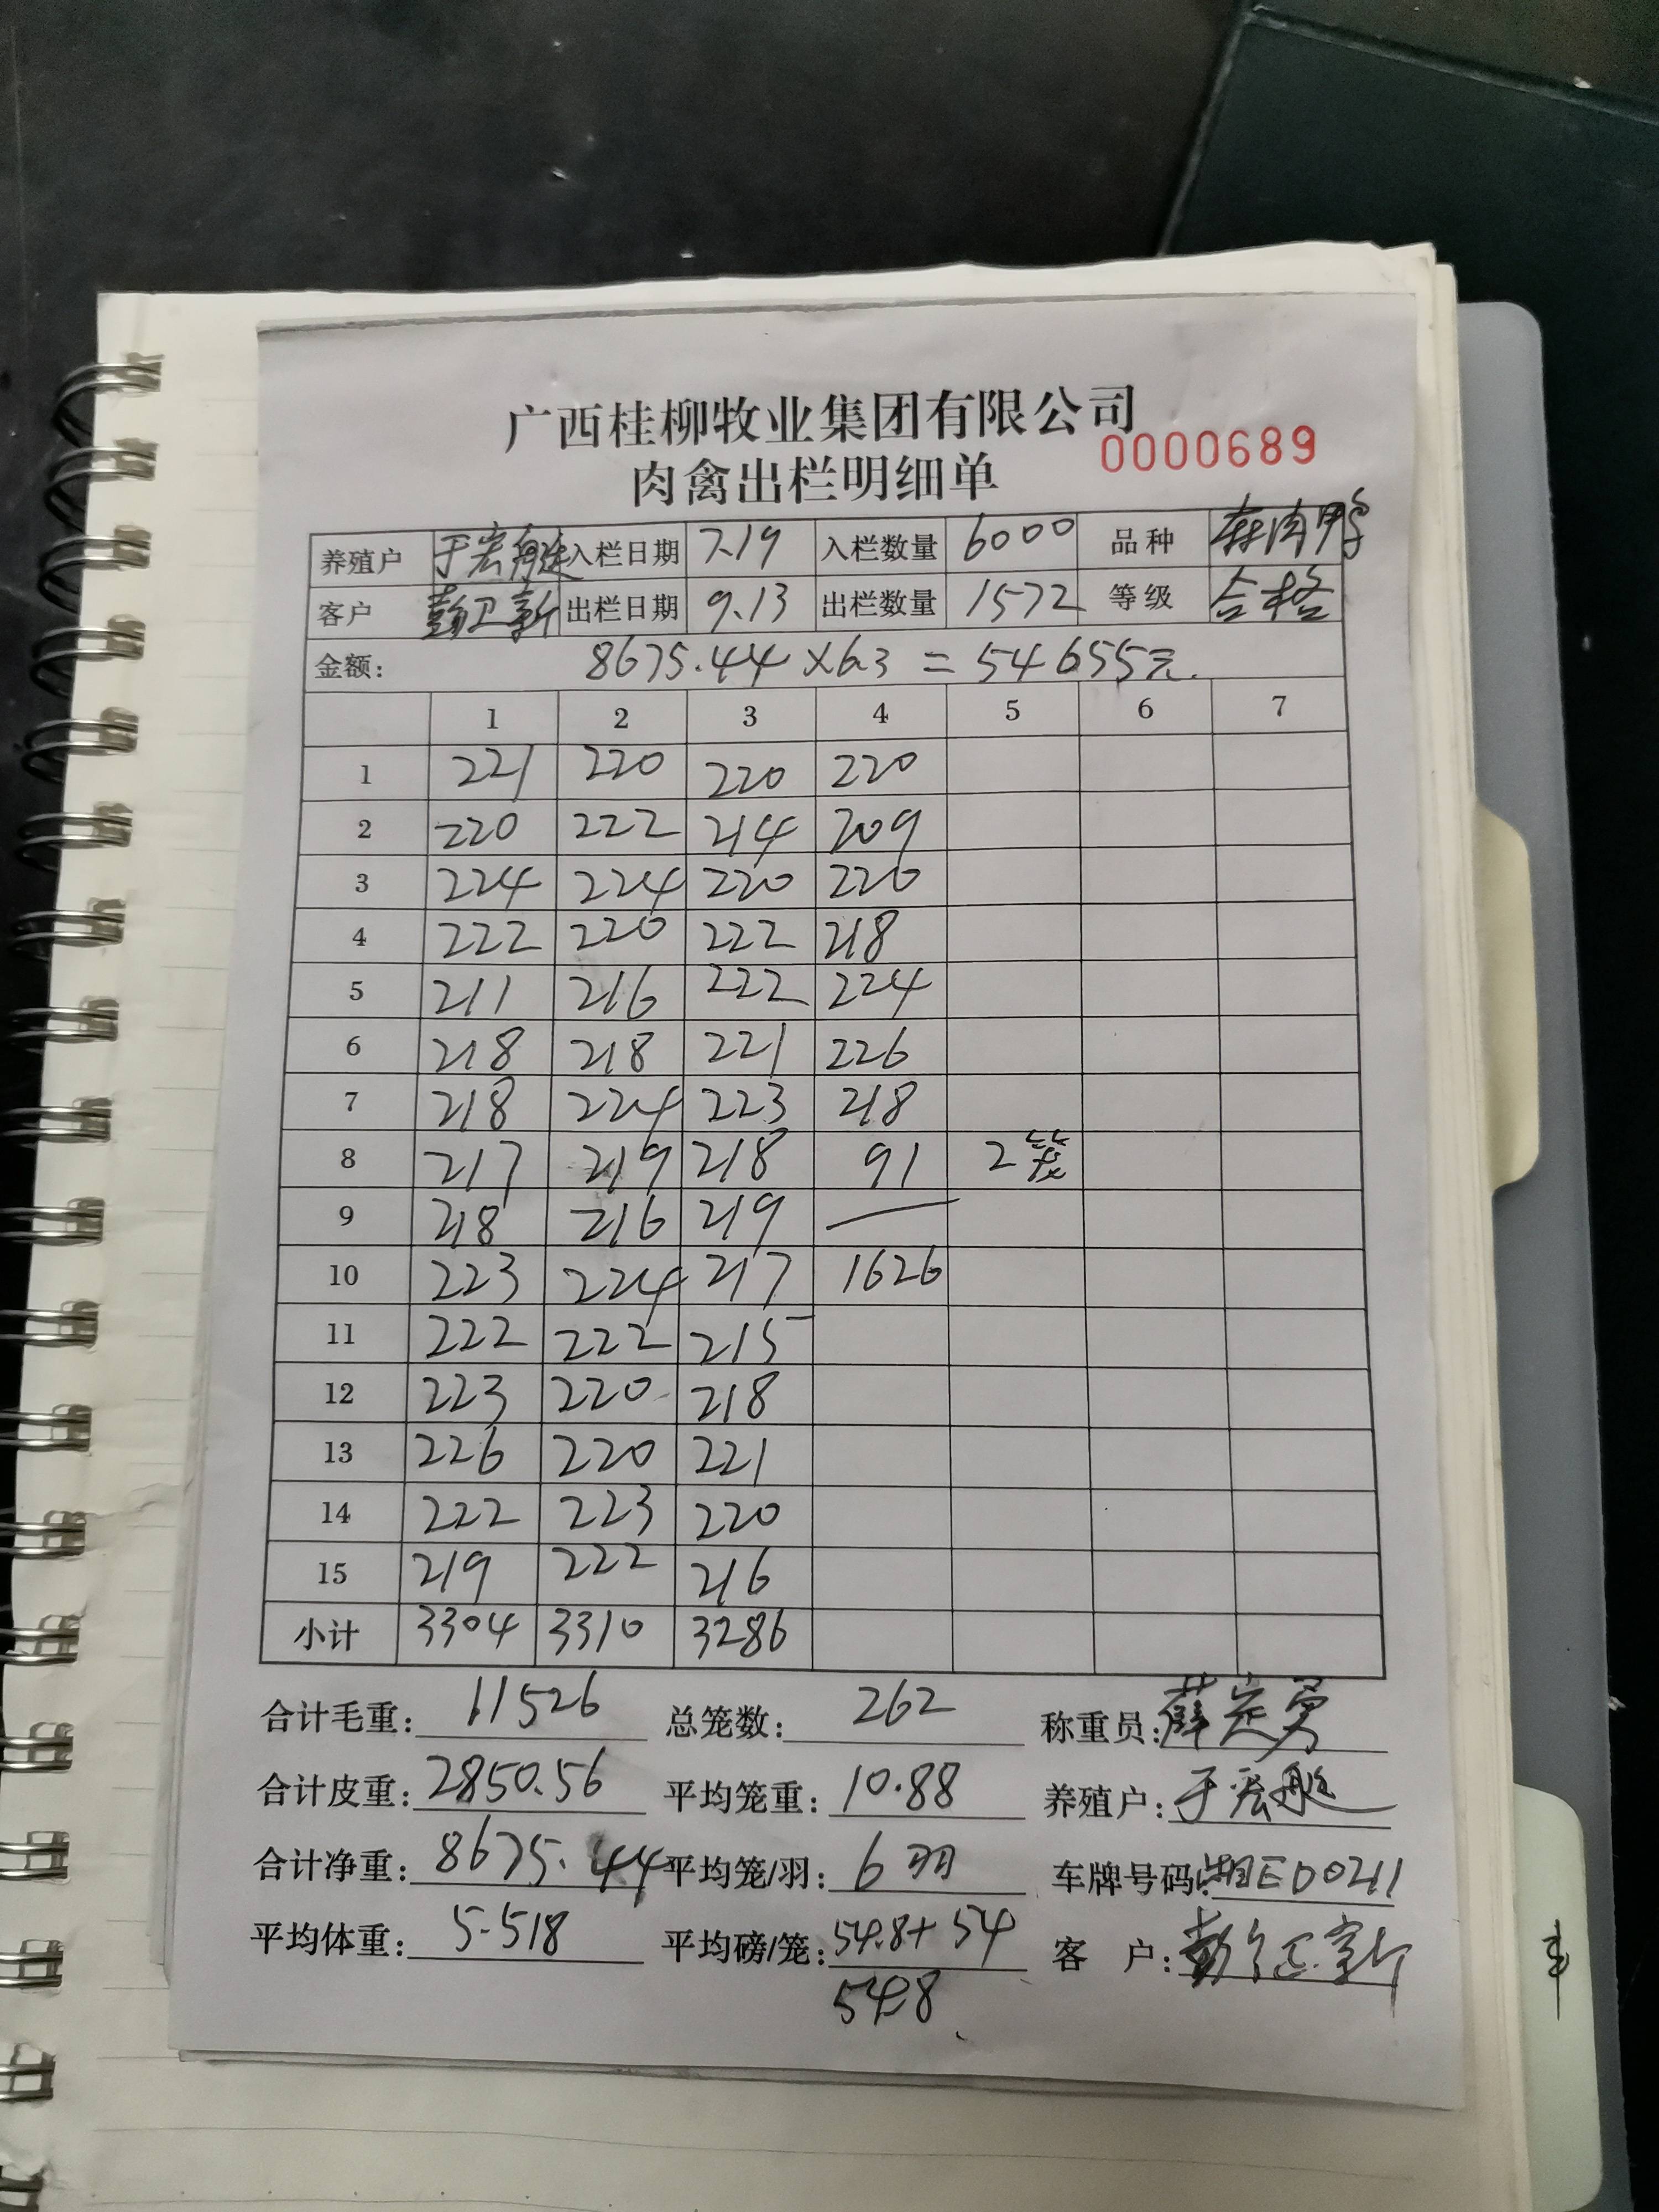 广西桂柳牧业集团有限公司
0000689
肉禽出栏明细单
养殖户 于宏艇 入栏日期 7.19 入栏数量 6000 品种 肉鸭
客户 彭卫新 出栏日期 9.13 出栏数量 1572 等级 合格
金额: 8675.44×6.3=54655元.
1 2 3 4 5 6 7
1 221 220 220 220
2 220 222 214 209
3 224 224 220 220
4 222 220 222 218
5 211 216 222 224
6 218 218 221 226
7 218 224 223 218
8 217 219 218 91 2笼
9 218 216 219 —
10 223 224 217 1626
11 222 222 215
12 223 220 218
13 226 220 221
14 222 223 220
15 219 222 216
小计 3304 3310 3286
合计毛重: 11526 总笼数: 262 称重员: 薛定勇
合计皮重: 2850.56 平均笼重: 10.88 养殖户: 于宏艇
合计净重: 8675.44 平均笼/羽: 6羽 车牌号码: 湘ED0211
平均体重: 5.518 平均磅/笼: 54.8+54 客 户: 彭卫新
548